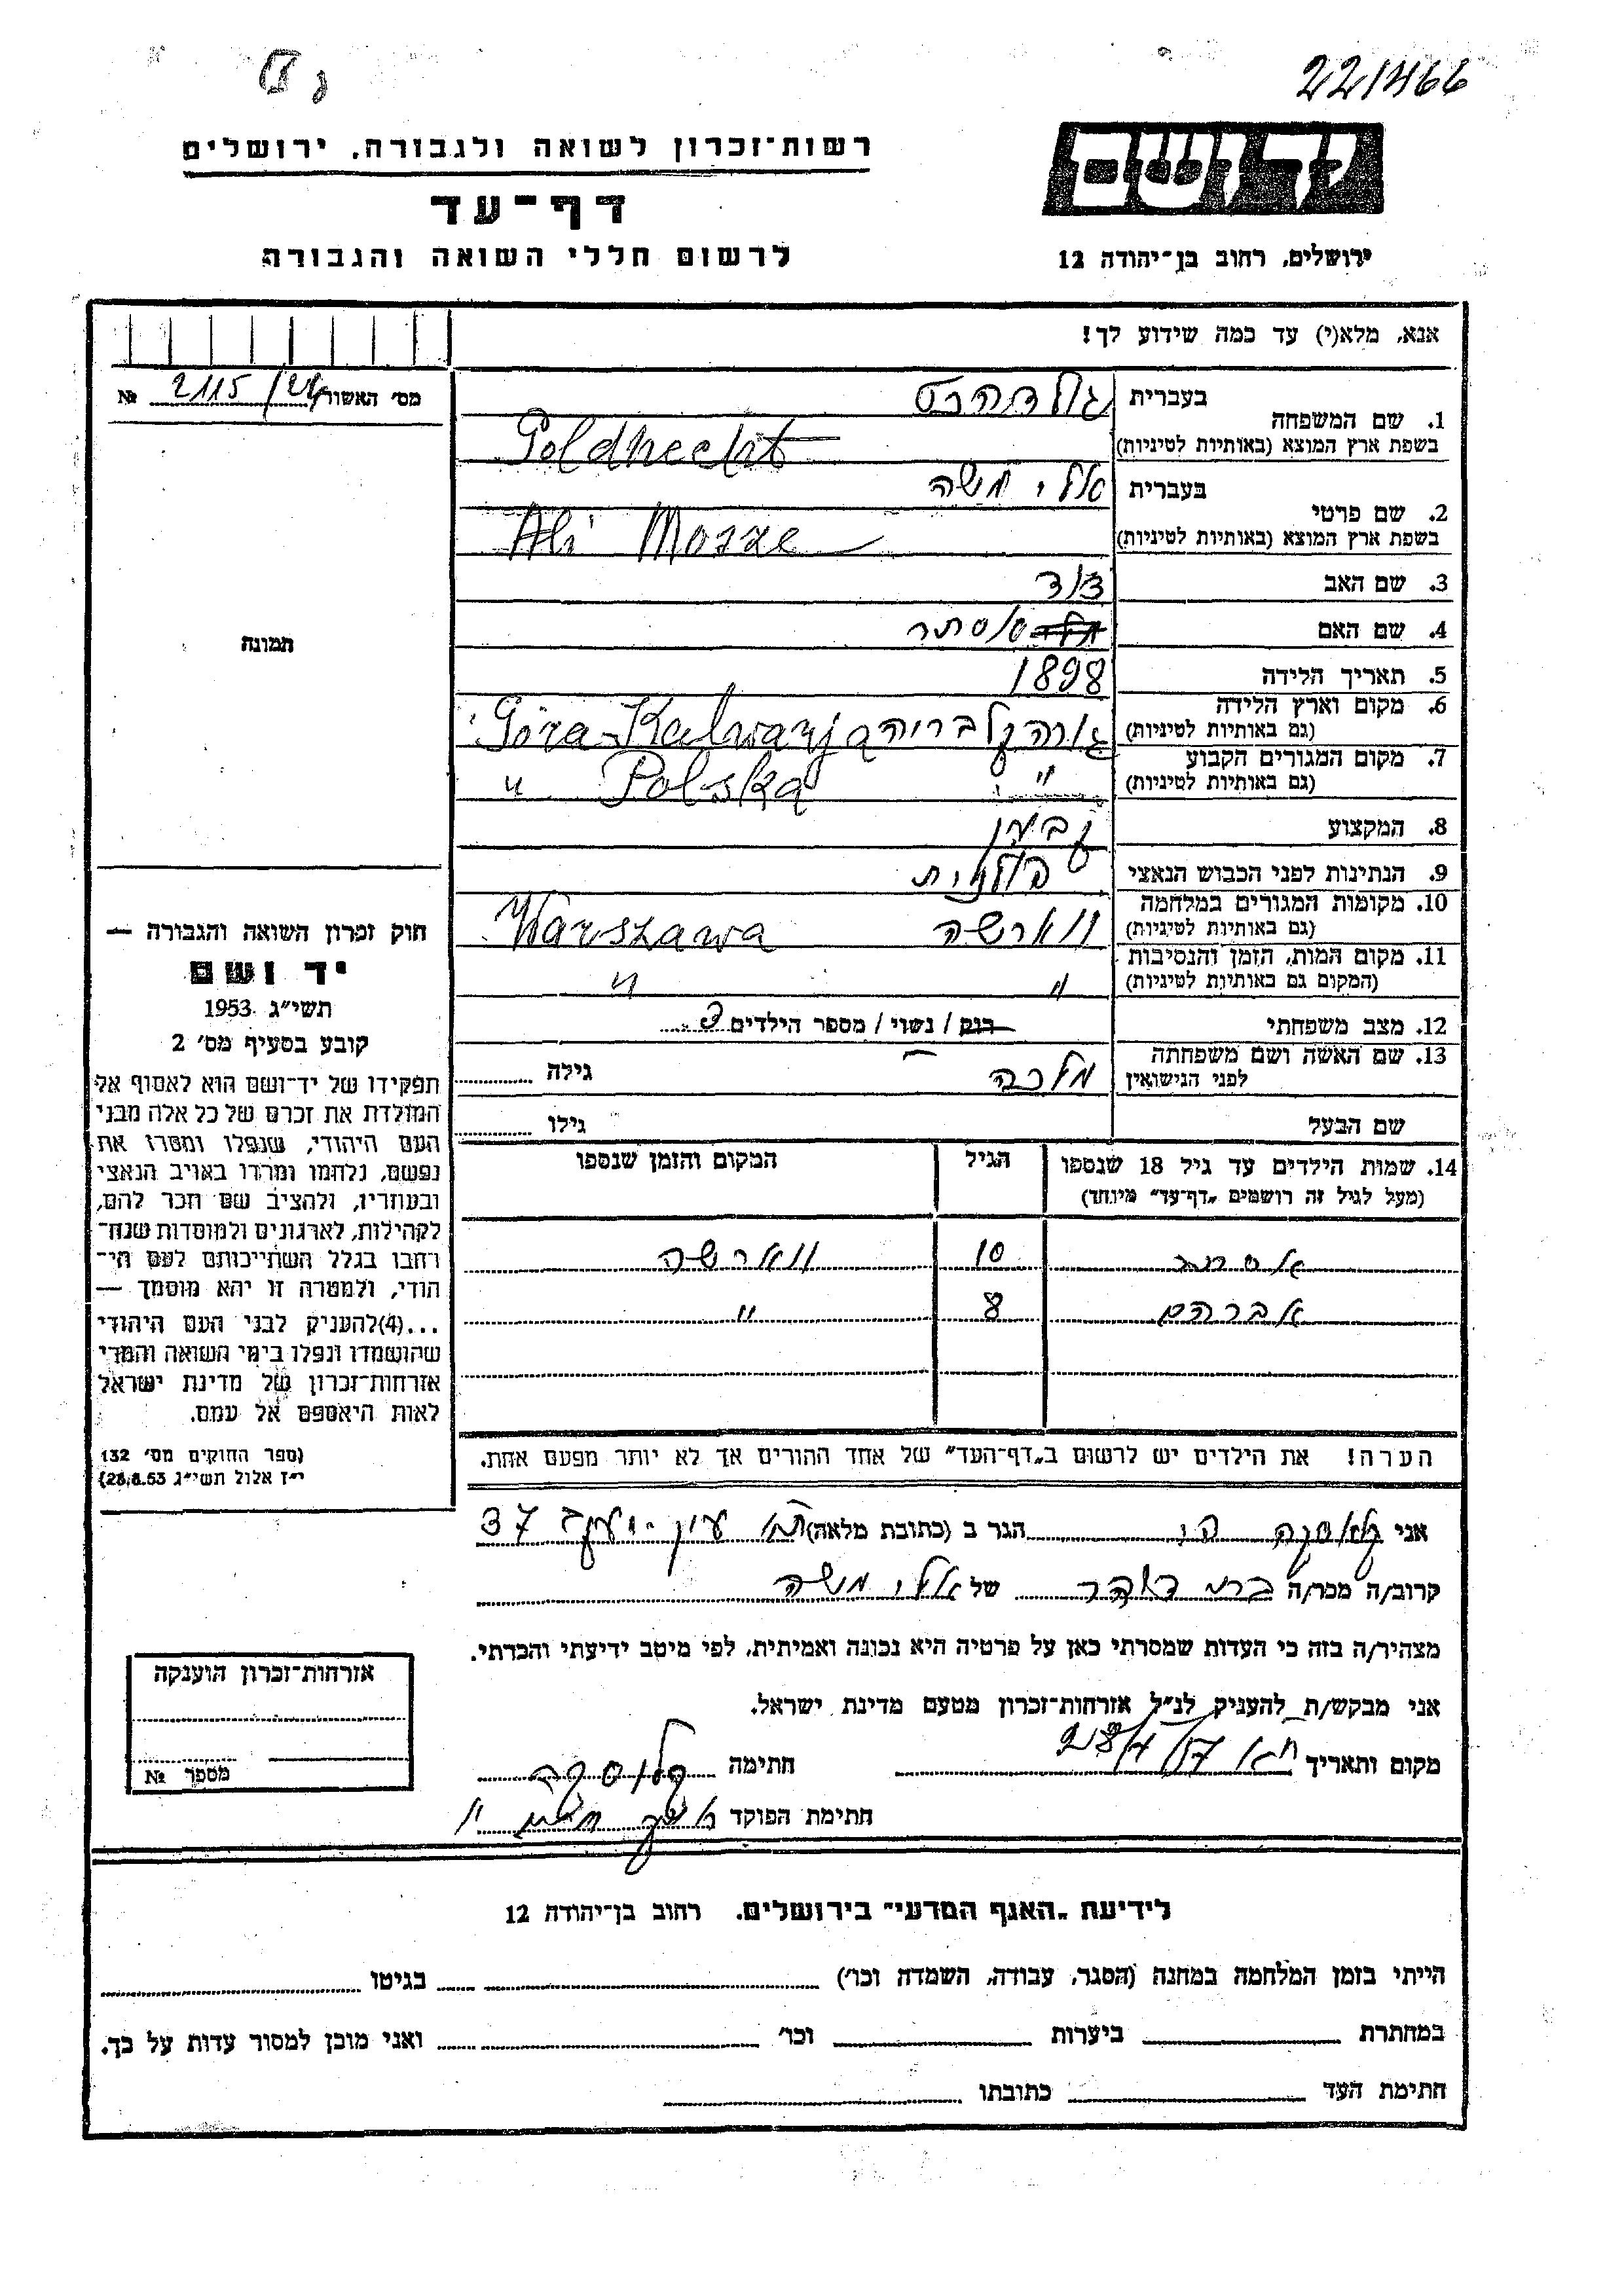 22/1466
רשות־זכרון לשואה ולגבורה, ירושלים
דף־עד
לרשום חללי השואה והגבורה
ידושם
ירושלים, רחוב בן־יהודה 12
אנא, מלא(י) עד כמה שידוע לך!
מס' האשור 2115/24 №
תמונה
1. שם המשפחה
בעברית
בשפת ארץ המוצא (באותיות לטיניות) Goldhecht
2. שם פרטי
בעברית אלי משה
בשפת ארץ המוצא (באותיות לטיניות) Ali Mosze
3. שם האב דוד
4. שם האם אסתר
5. תאריך הלידה 1898
6. מקום וארץ הלידה
(גם באותיות לטיניות) גורה קלבריה Góra Kalwarja
7. מקום המגורים הקבוע
(גם באותיות לטיניות) " " Polska
8. המקצוע
9. הנתינות לפני הכבוש הנאצי פולנית
10. מקומות המגורים במלחמה
(גם באותיות לטיניות) ווארשה Warszawa
11. מקום המות, הזמן והנסיבות
(המקום גם באותיות לטיניות) " "
12. מצב משפחתי רוק / נשוי / מספר הילדים 3
13. שם האשה ושם משפחתה
לפני הנישואין מלכה גילה
שם הבעל גילו
14. שמות הילדים עד גיל 18 שנספו
(מעל לגיל זה רושמים „דף־עד" מיוחד)
הגיל
המקום והזמן שנספו
10 ווארשה
אברהם 8 "
הערה! את הילדים יש לרשום ב„דף־העד" של אחד ההורים אך לא יותר מפעם אחת.
חוק זכרון השואה והגבורה —
יד ושם
תשי"ג 1953
קובע בסעיף מס' 2
תפקידו של יד־ושם הוא לאסוף אל
המולדת את זכרם של כל אלה מבני
העם היהודי, שנפלו ומסרו את
נפשם, נלחמו ומרדו באויב הנאצי
ובעוזריו, ולהציב שם וזכר להם,
לקהילות, לארגונים ולמוסדות שנח־
רחבו בגלל השתייכותם לעם הי־
הודי, ולמטרה זו יהא מוסמך —
...(4)להעניק לבני העם היהודי
שהושמדו ונפלו בימי השואה והמרי
אזרחות־זכרון של מדינת ישראל
לאות היאספם אל עמם.
(ספר החוקים מס' 132
י"ז אלול תשי"ג 28.8.53)
אני הגר ב (כתובת מלאה) 37
קרוב/ה מכר/ה של אלי משה
מצהיר/ה בזה כי העדות שמסרתי כאן על פרטיה היא נכונה ואמיתית, לפי מיטב ידיעתי והכרתי.
אני מבקש/ת להעניק לנ"ל אזרחות־זכרון מטעם מדינת ישראל.
מקום ותאריך חתימה
חתימת הפוקד
אזרחות־זכרון הוענקה
מספר №
לידיעת „האגף המדעי" בירושלים, רחוב בן־יהודה 12
הייתי בזמן המלחמה במחנה (הסגר, עבודה, השמדה וכו') בגיטו
במחתרת ביערות וכו' ואני מוכן למסור עדות על כך.
חתימת העד כתובתו